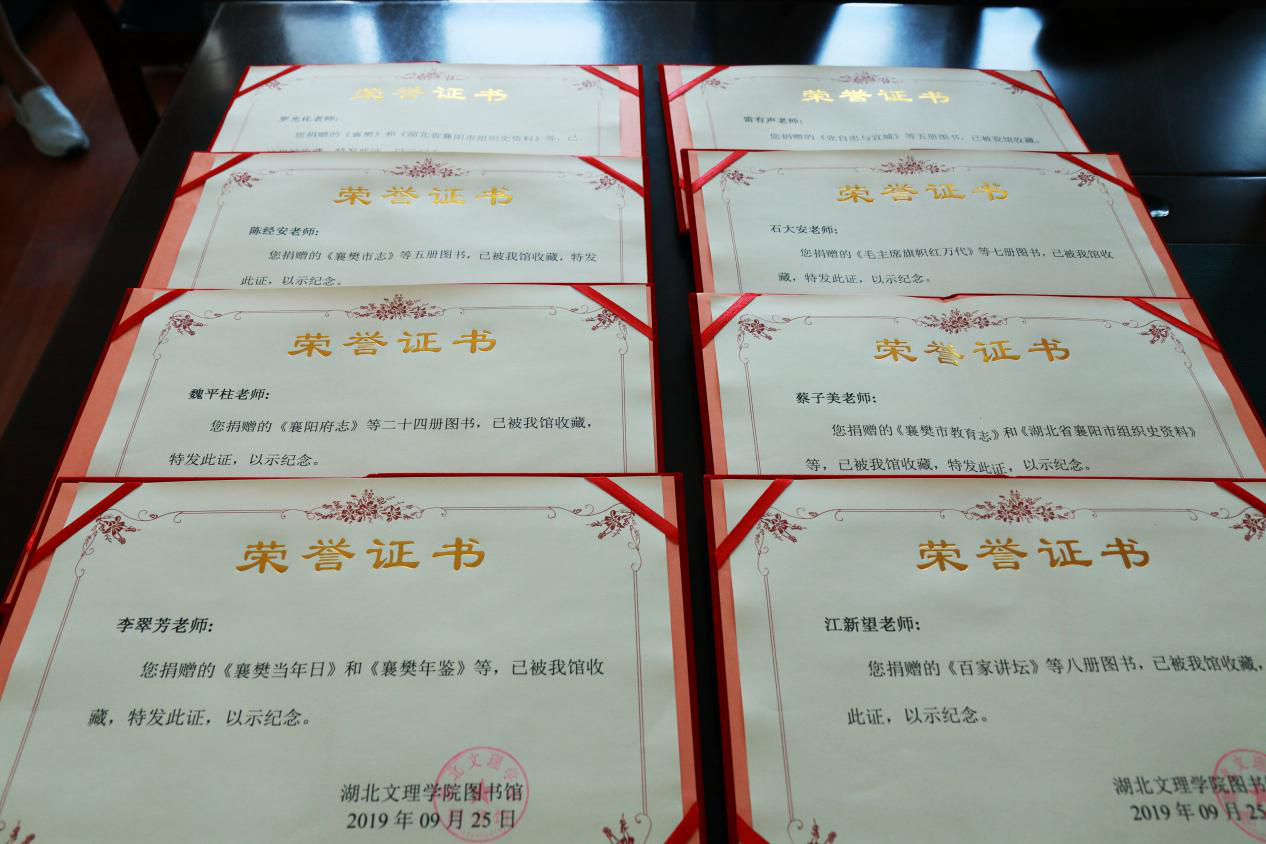 荣誉证书
罗光化老师：
您捐赠的《襄樊》和《湖北省襄阳市组织史资料》等，已
荣誉证书
雷有声老师：
您捐赠的《张自忠与宜城》等五册图书，已被我馆收藏，
荣誉证书
陈经安老师：
您捐赠的《襄樊市志》等五册图书，已被我馆收藏，特发
此证，以示纪念。
荣誉证书
石大安老师：
您捐赠的《毛主席旗帜红万代》等七册图书，已被我馆收
藏，特发此证，以示纪念。
荣誉证书
魏平柱老师：
您捐赠的《襄阳府志》等二十四册图书，已被我馆收藏，
特发此证，以示纪念。
荣誉证书
蔡子美老师：
您捐赠的《襄樊市教育志》和《湖北省襄阳市组织史资料》
等，已被我馆收藏，特发此证，以示纪念。
荣誉证书
李翠芳老师：
您捐赠的《襄樊当年日》和《襄樊年鉴》等，已被我馆收
藏，特发此证，以示纪念。
湖北文理学院图书馆
2019 年 09 月 25 日
荣誉证书
江新望老师：
您捐赠的《百家讲坛》等八册图书，已被我馆收藏，
此证，以示纪念。
湖北文理学院图书
2019 年 09 月 25